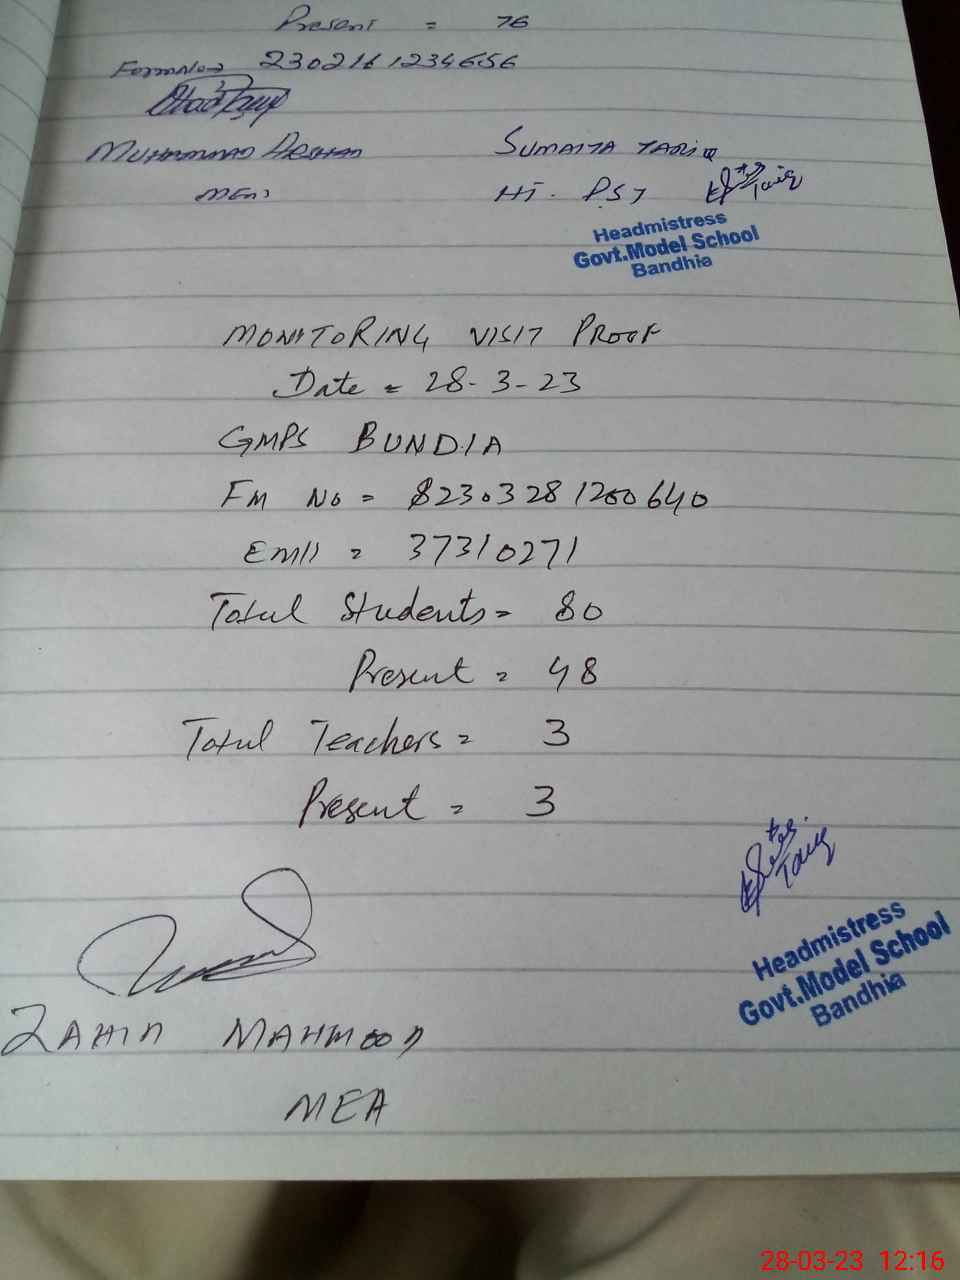 Present = 76
Form No = 2302161234656
MUHAMMAD ARSHAD
SUMAIYA TARIQ
HT. PST
Tariq
Headmistress
Govt.Model School
Bandhia
MONITORING VISIT PROOF
Date = 28-3-23
GMPS BUNDIA
FM No = 82303281200640
EMIS = 37310271
Total Students = 80
Present = 48
Total Teachers = 3
Present = 3
Tariq
Headmistress
Govt.Model School
Bandhia
MAHMOOD
MEA
28-03-23 12:16